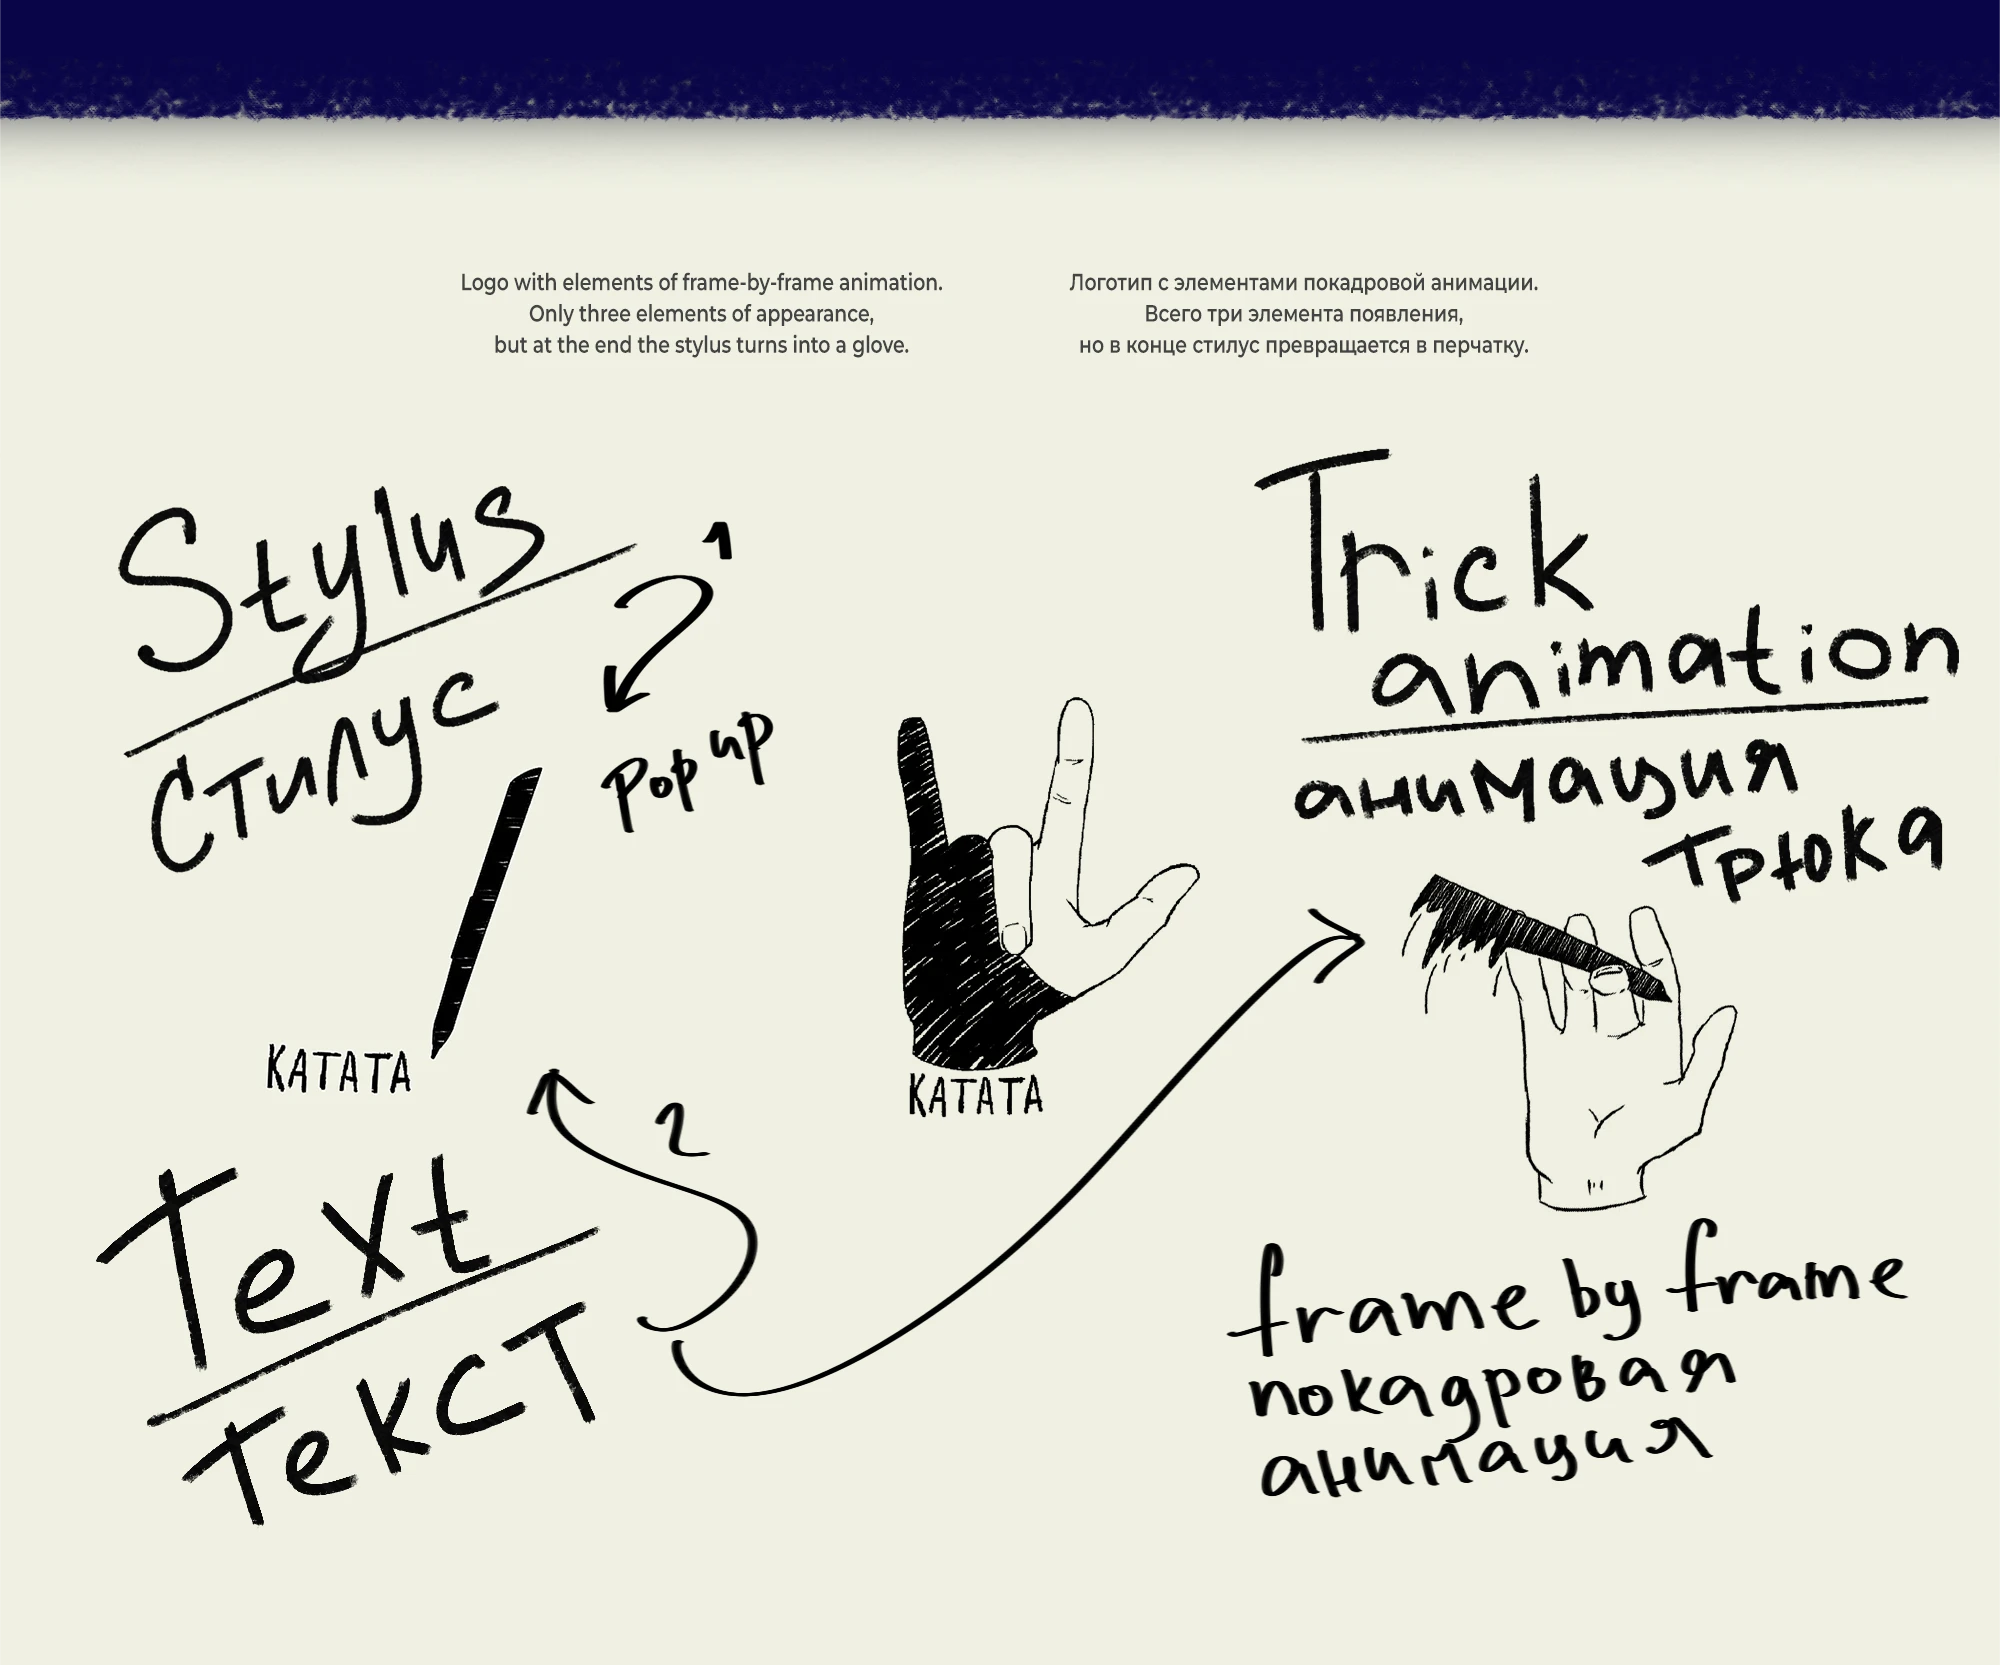 Logo with elements of frame-by-frame animation.
Only three elements of appearance,
but at the end the stylus turns into a glove.
Логотип с элементами покадровой анимации.
Всего три элемента появления,
но в конце стилус превращается в перчатку.
Stylus
Стилус
1
Pop up
КАТАТА
2
Text
Текст
КАТАТА
Trick
animation
анимация
трюка
frame by frame
покадровая
анимация